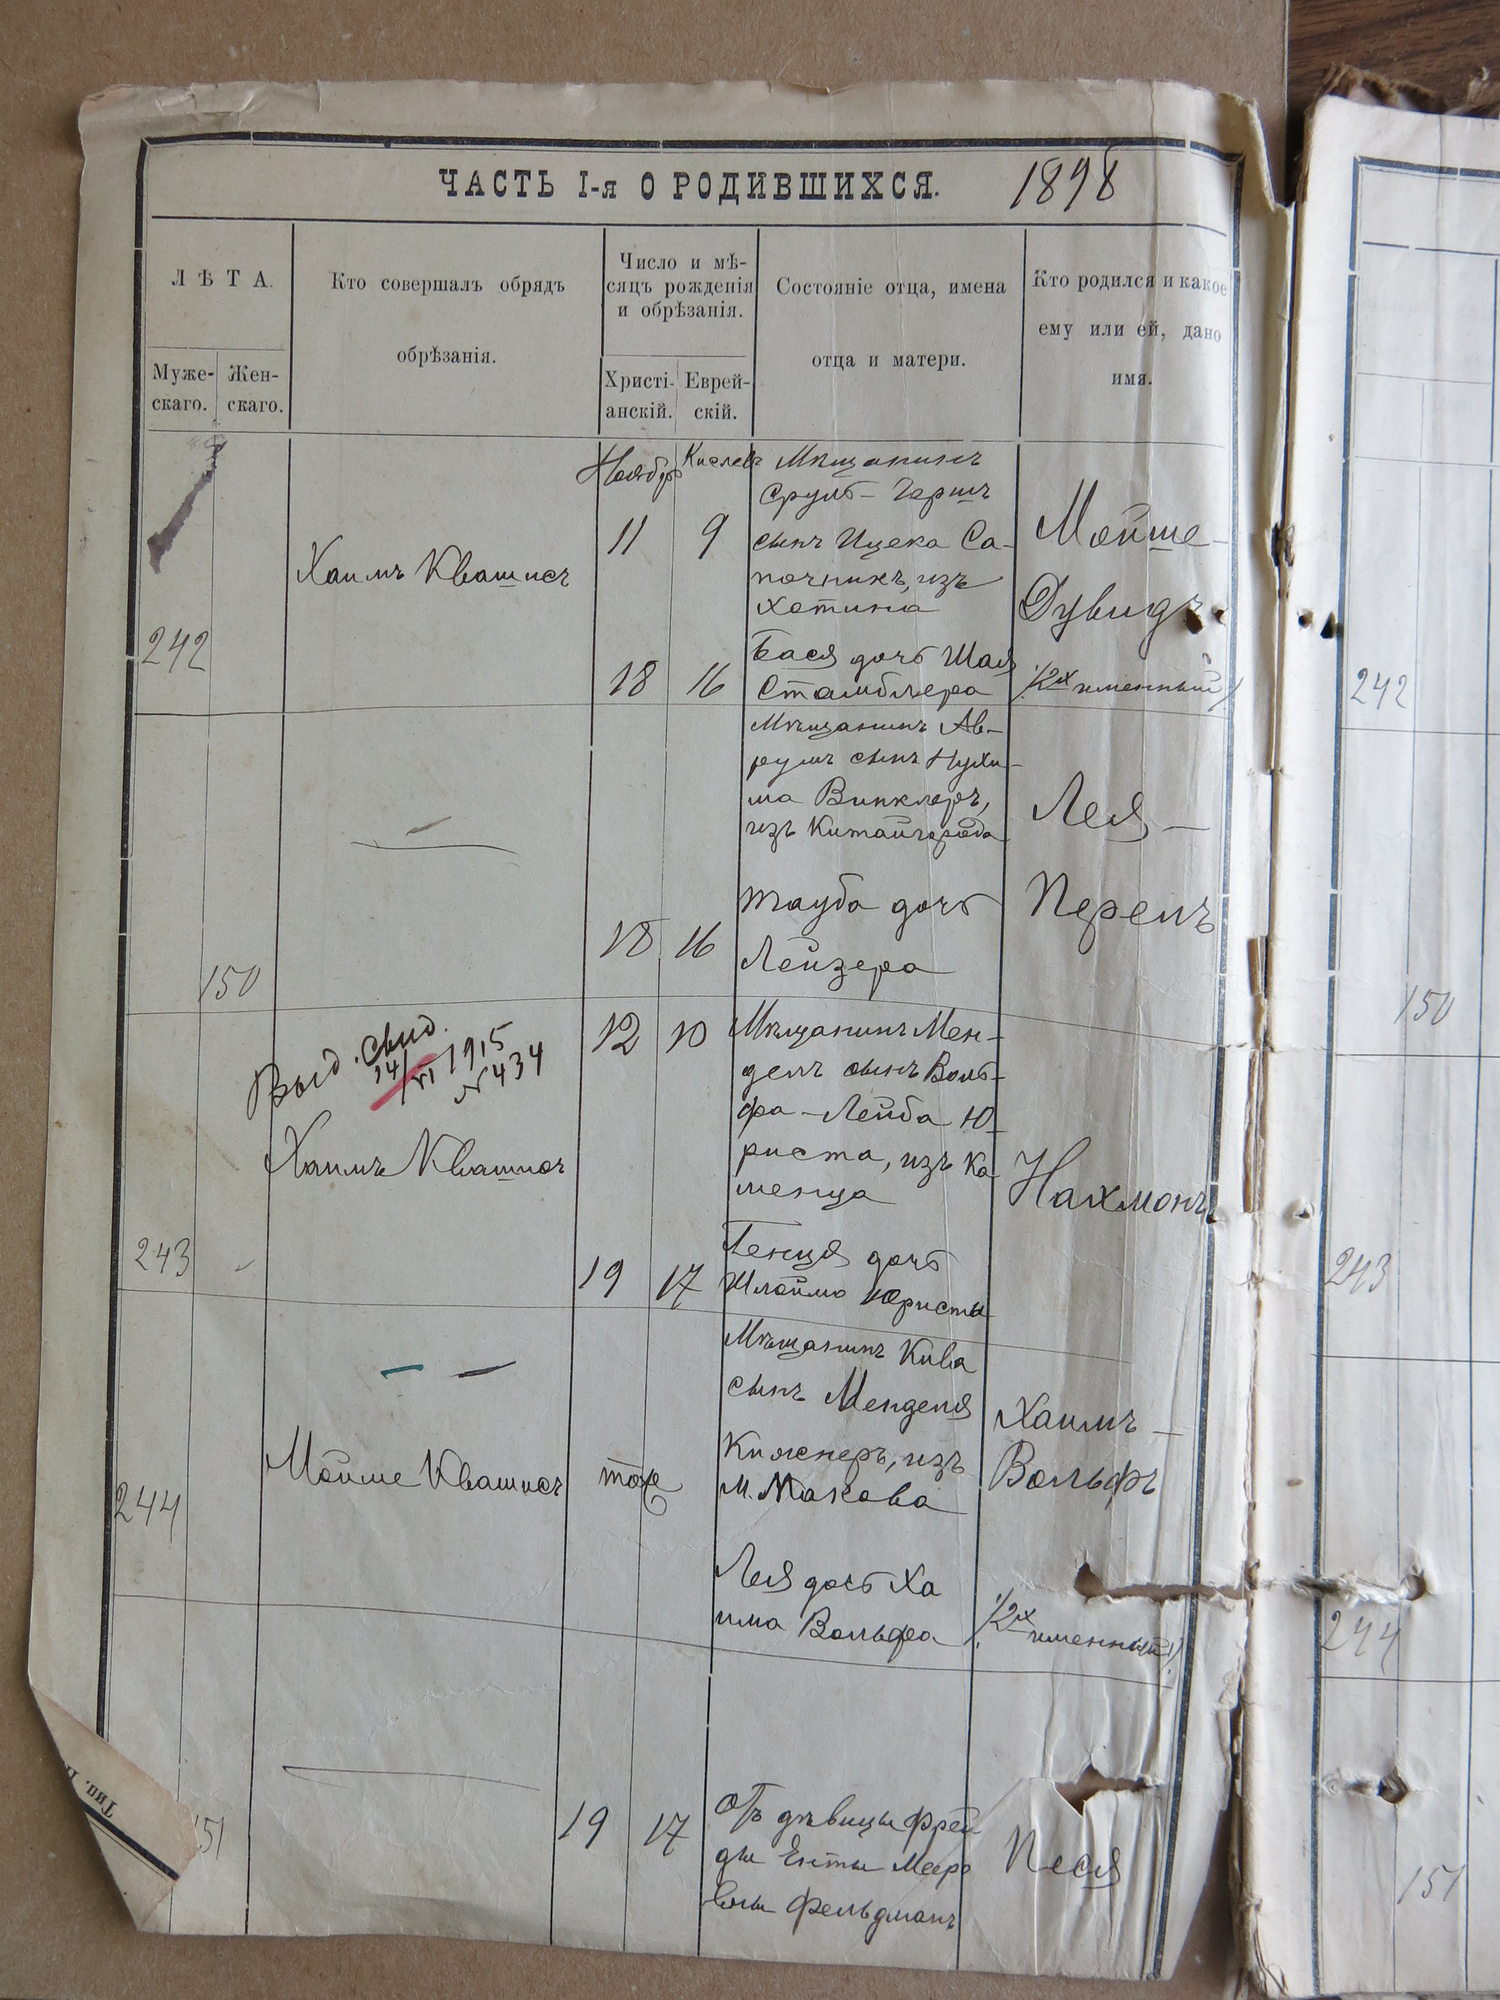 ЧАСТЬ I-я О РОДИВШИХСЯ. 1898
ЛѢТА.
Муже-
скаго.
Жен-
скаго.
Кто совершалъ обрядъ
обрѣзанія.
Число и мѣ-
сяцъ рожденія
и обрѣзанія.
Христі-
анскій.
Еврей-
скій.
Состояніе отца, имена
отца и матери.
Кто родился и какое
ему или ей, дано
имя.
242
Хаимъ Квашисъ
Ноябрь
Кислевъ
11 9
18 16
Мѣщанинъ
Сруль-Гершъ
сынъ Ицека Са-
почникъ, изъ
Хотина
Бася дочь Шая
Стамблера
Мойше-
Дувидъ
/2хъ именный/
150
18 16
Мѣщанинъ Ав-
румъ сынъ Нухи-
ма Винклеръ,
изъ Китайгорода
Тауба дочь
Лейзера
Лея-
Перель
243
Выд. свид.
14/VI 1915
№ 434
Хаимъ Квашисъ
12 10
19 17
Мѣщанинъ Мен-
дель сынъ Воль-
фа-Лейба Ю-
риста, изъ Ка
менца
Генця дочь
Шлоймо Юристы
Нахмонъ
244
Мойше Квашисъ
тоже
Мѣщанинъ Кива
сынъ Менделя
Кижнеръ, изъ
м. Макова
Лея дочь Ха
има Вольфа
Хаимъ-
Вольфъ
/2хъ именный/
151
19 17
Отъ дѣвицы Фрей
ды Енты Меер
вны Фельдманъ
Песя
Тип.
242
150
243
244
151